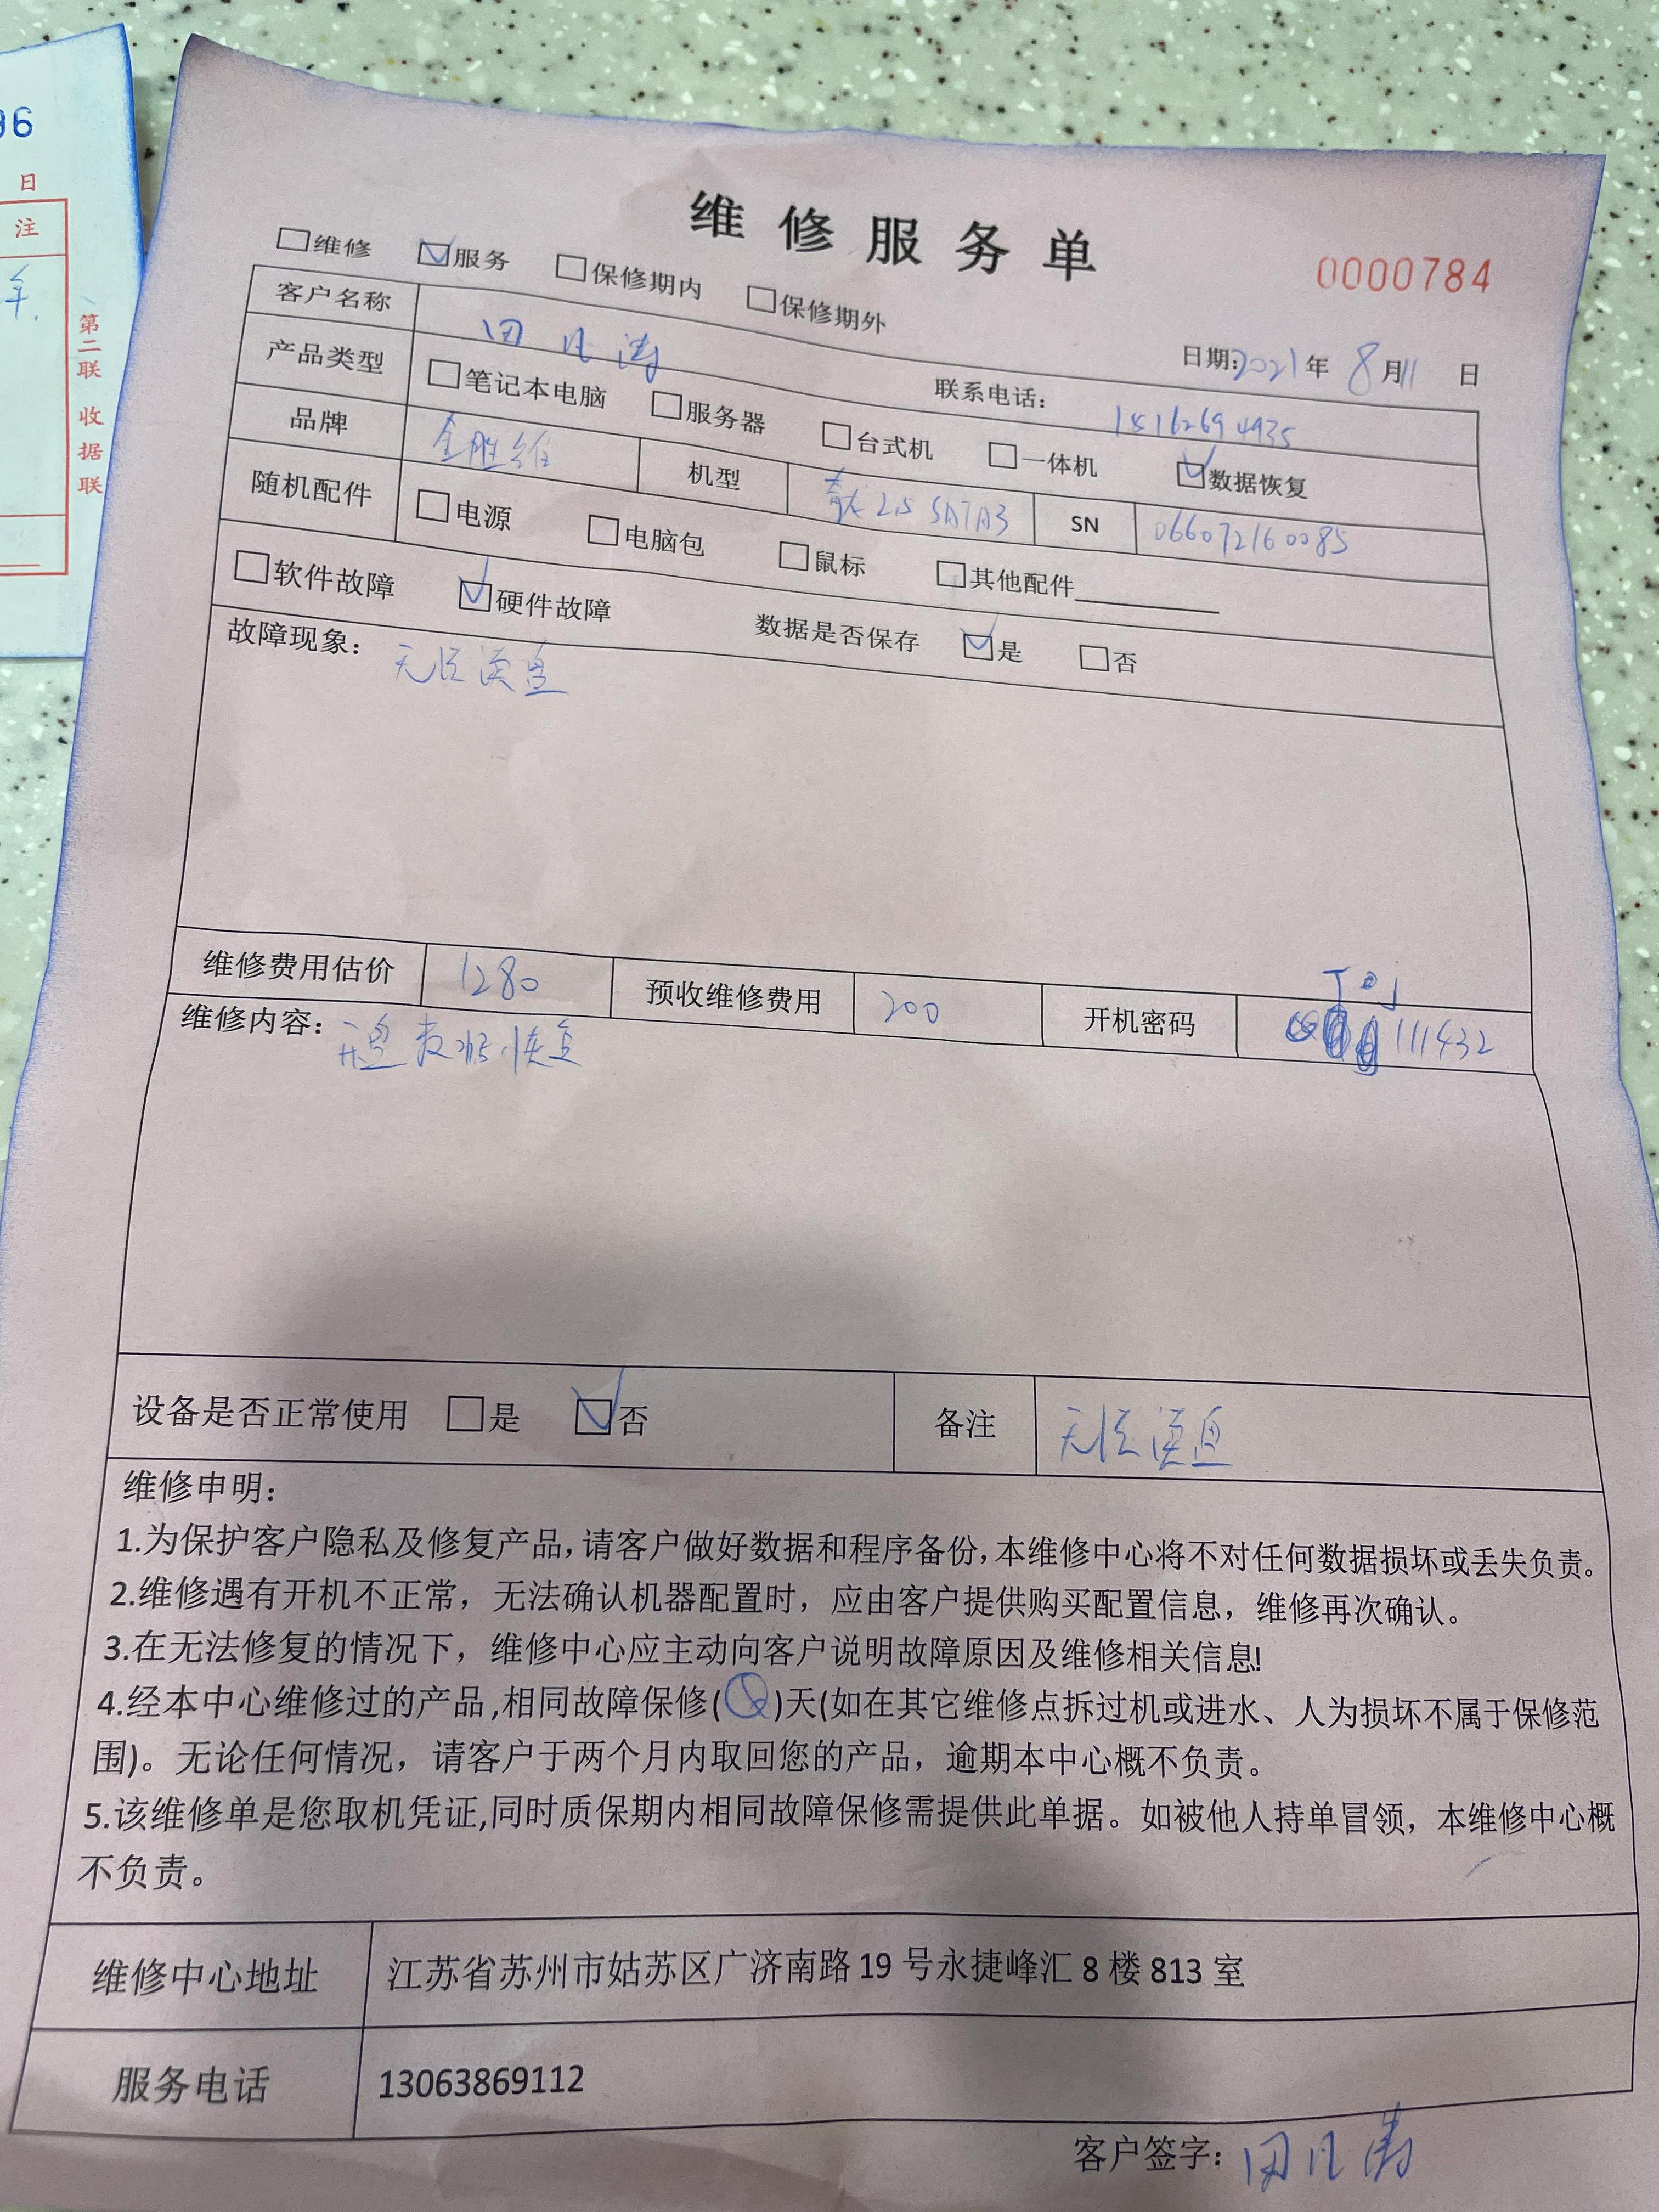 96
日
注
年.
第二联 收据联
维修服务单
0000784
维修 服务 保修期内 保修期外
日期:2021年 8月11日
客户名称 田凡涛 联系电话:
产品类型 笔记本电脑 服务器 台式机 一体机 数据恢复
品牌 金胜维 机型 2.5 SATA3 SN 066072160085
随机配件 电源 电脑包 鼠标 其他配件
软件故障 硬件故障 数据是否保存 是 否
故障现象: 无法读盘
维修费用估价 1280 预收维修费用 200 开机密码 111432
维修内容: 数据恢复
设备是否正常使用 是 否 备注 无法读盘
维修申明:
1.为保护客户隐私及修复产品,请客户做好数据和程序备份,本维修中心将不对任何数据损坏或丢失负责。
2.维修遇有开机不正常，无法确认机器配置时，应由客户提供购买配置信息，维修再次确认。
3.在无法修复的情况下，维修中心应主动向客户说明故障原因及维修相关信息!
4.经本中心维修过的产品,相同故障保修( )天(如在其它维修点拆过机或进水、人为损坏不属于保修范
围)。无论任何情况，请客户于两个月内取回您的产品，逾期本中心概不负责。
5.该维修单是您取机凭证,同时质保期内相同故障保修需提供此单据。如被他人持单冒领，本维修中心概
不负责。
维修中心地址 江苏省苏州市姑苏区广济南路19号永捷峰汇8楼813室
服务电话 13063869112
客户签字: 田凡涛